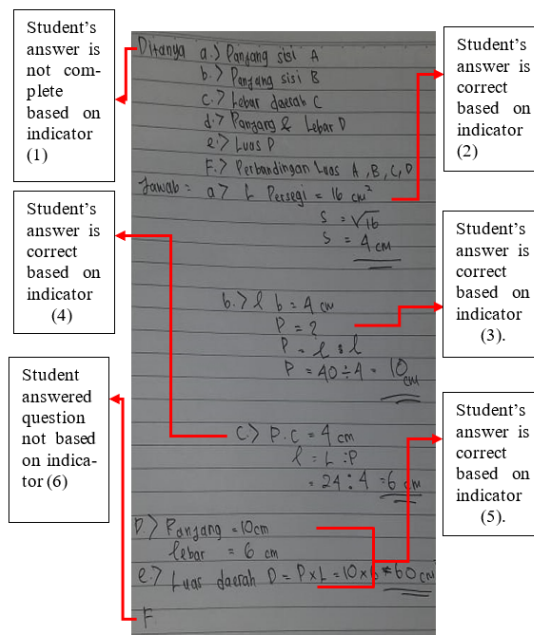 Student's
answer is
not com-
plete
based on
indicator
(1)
Student's
answer is
correct
based on
indicator
(4)
Student
answered
question
not based
on indica-
tor (6)
Ditanya a.> Panjang sisi A
b.> Panjang sisi B
c.> Lebar daerah C
d.> Panjang & Lebar D
e.> Luas D
F.> Perbandingan Luas A, B, C, D
Jawab = a> L Persegi = 16 cm²
s = √16
s = 4 cm
b.> l b = 4 cm
P = ?
P = L : l
P = 40 ÷ 4 = 10 cm
C.> P.C = 4 cm
l = L : P
= 24 : 4 = 6 cm
D.> Panjang = 10 cm
lebar = 6 cm
e.> Luas daerah D = P x L = 10 x 6 = 60 cm
F.
Student's
answer is
correct
based on
indicator
(2)
Student's
answer is
correct
based on
indicator
(3).
Student's
answer is
correct
based on
indicator
(5).